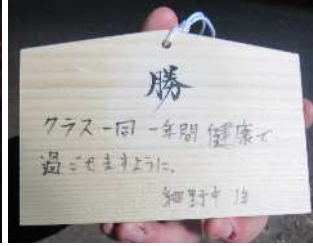 勝
クラス一同 一年間 健康で
過ごせますように。
細野中 1B